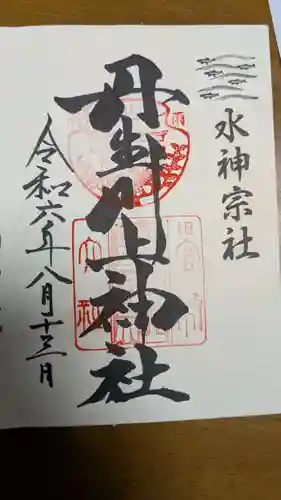 水神宗社
丹生川上神社
令和六年八月十三月